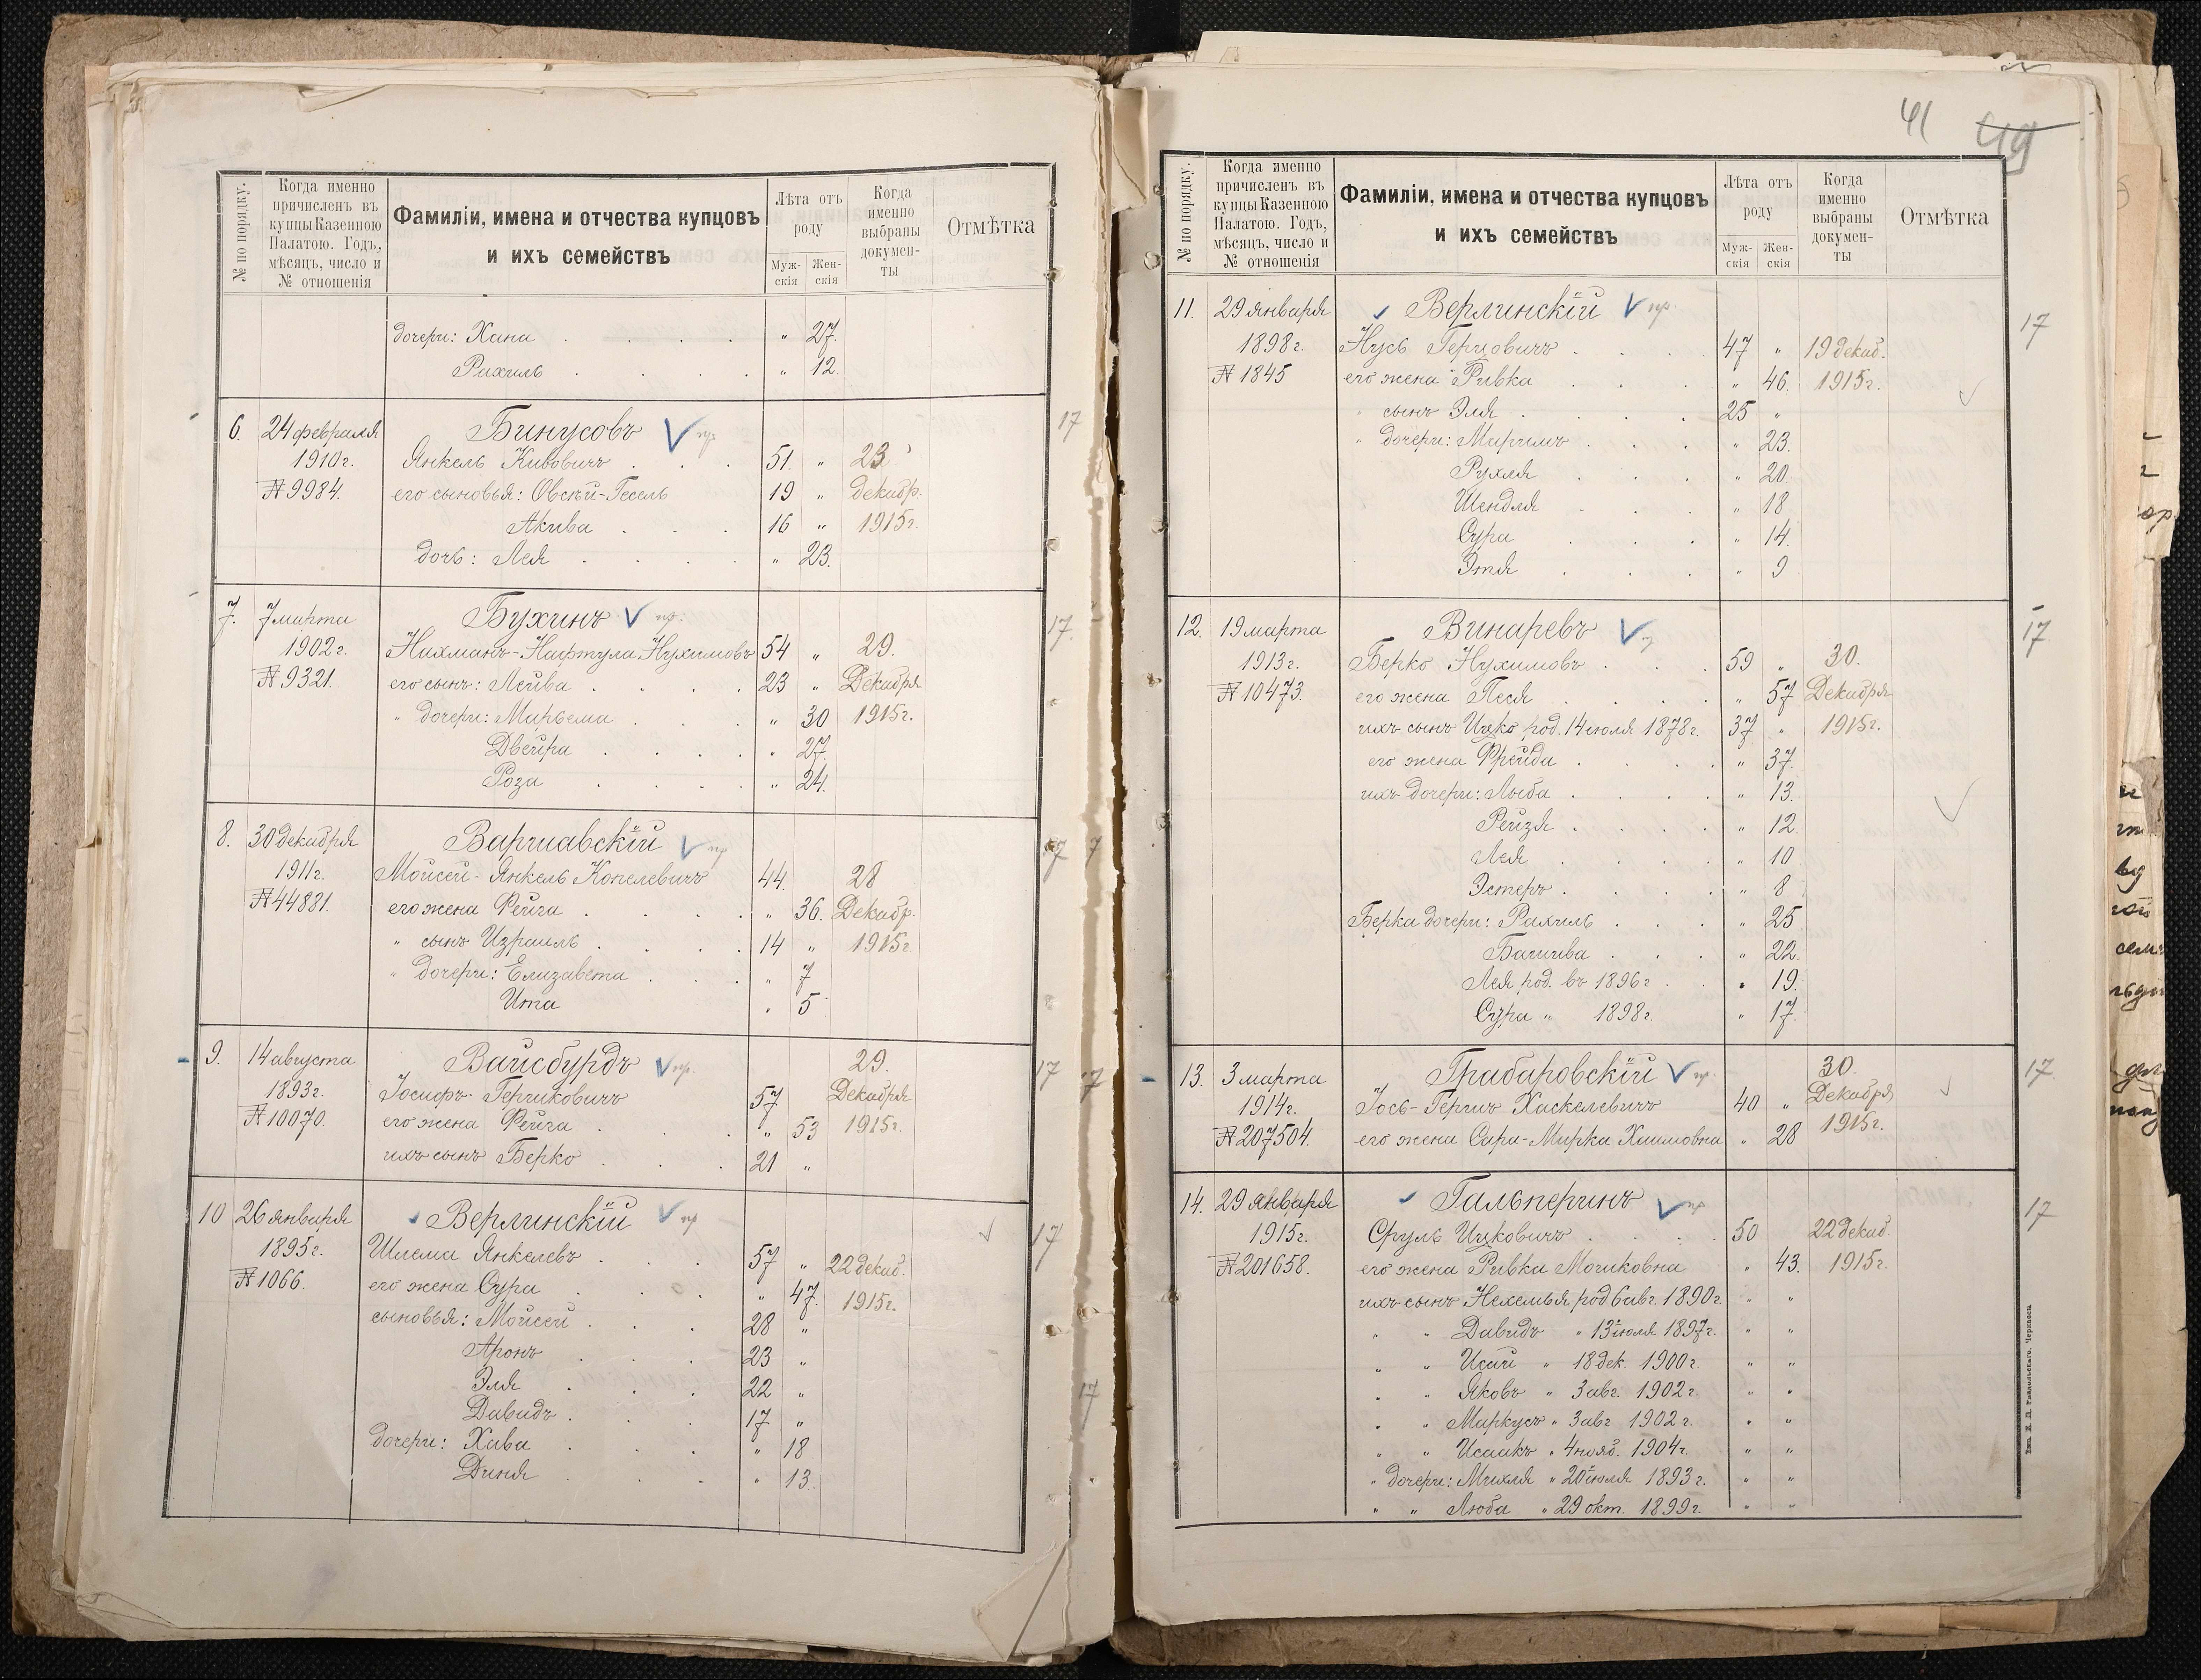 № по порядку.
Когда именно
причисленъ въ
купцы Казенною
Палатою. Годъ,
мѣсяцъ, число и
№ отношенія
Фамиліи, имена и отчества купцовъ
и ихъ семействъ
Лѣта отъ
роду
Муж-
скія
Жен-
скія
Когда
именно
выбраны
докумен-
ты
Отмѣтка
дочери: Хана " 27.
Рахиль " 12.
6. 24 февраля Бинусовъ 17
1910 г. Янкель Кивовичъ 51. " 23
№ 9984. его сыновья: Овсѣй-Гесель 19 " декабр.
Акива 16 " 1915 г.
дочь: Лея " 23.
7. 7 марта Бухинъ пр. 17.
1902 г. Нахманъ-Нафтула Нухимовъ 54 " 29.
№ 9321. его сынъ: Лейва 23 " Декабря
" дочери: Мирьема " 30 1915 г.
Двейра " 27.
Роза " 24.
8. 30 декабря Варшавскій пр 17 7
1911 г. Мойсей-Янкель Копелевичъ 44. 28
№ 44881. его жена Рейга " 36. Декабр.
" сынъ Израиль 14 " 1915 г.
" дочери: Елизавета " 7
Ита " 5
9. 14 августа Вайсбурдъ пр. 29. 17 17
1893 г. Іосифъ-Гершковичъ 57 Декабря
№ 10070. его жена Рейга " 53 1915 г.
ихъ сынъ Берко 21 "
10 26 января Верлинскій пр 17
1895 г. Шлема Янкелевъ 57 " 22 декаб.
№ 1066. его жена Сура " 47. 1915 г.
сыновья: Мойсей 28 "
Аронъ 23 "
Эля 22 " 17
Давидъ 17 "
дочери: Хава " 18
Диня " 13.
41 49
№ по порядку.
Когда именно
причисленъ въ
купцы Казенною
Палатою. Годъ,
мѣсяцъ, число и
№ отношенія
Фамиліи, имена и отчества купцовъ
и ихъ семействъ
Лѣта отъ
роду
Муж-
скія
Жен-
скія
Когда
именно
выбраны
докумен-
ты
Отмѣтка
11. 29 января Верлинскій пр. 17
1898 г. Нусь Герцовичъ 47 " 19 декаб.
№ 1845 его жена Ривка " 46. 1915 г.
" сынъ Эля 25 "
" дочери: Миримъ " 23.
Рухля " 20
Шендля " 18
Сура " 14.
Этя " 9
12. 19 марта Винаревъ 17
1913 г. Берко Нухимовъ 59 " 30.
№ 10473. его жена Песя " 57 Декабря
ихъ сынъ Ицко род. 14 іюля 1878 г. 37 " 1915 г.
его жена Фрейда " 37.
ихъ дочери: Люба " 13.
Рейзя " 12.
Лея " 10
Эстеръ " 8
Берка дочери: Рахиль " 25
Башива " 22.
Лея род. въ 1896 г " 19.
Сура " 1898 г. " 17.
13. 3 марта Грабаровскій пр. 30. 17
1914 г. Іось-Гершъ Хаскелевичъ 40 " Декабря
№ 207504. его жена Сара-Мирка Хаимовна " 28 1915 г.
14. 29 января Гальперинъ пр 17
1915 г. Сруль Ицковичъ 50 22 декаб
№ 201658. его жена Ривка Мошковна " 43. 1915 г.
ихъ сынъ Нехемья род 6 авг. 1890 г. " "
" " Давидъ " 13 іюля 1897 г. " "
" " Исай " 18 дек. 1900 г. " "
" " Яковъ " 3 авг. 1902 г. " "
" " Маркусъ " 3 авг 1902 г. " "
" " Исаакъ " 4 нояб. 1904 г. " "
" дочери: Михля " 20 іюля 1893 г. " "
" " Люба " 29 окт. 1899 г. " "